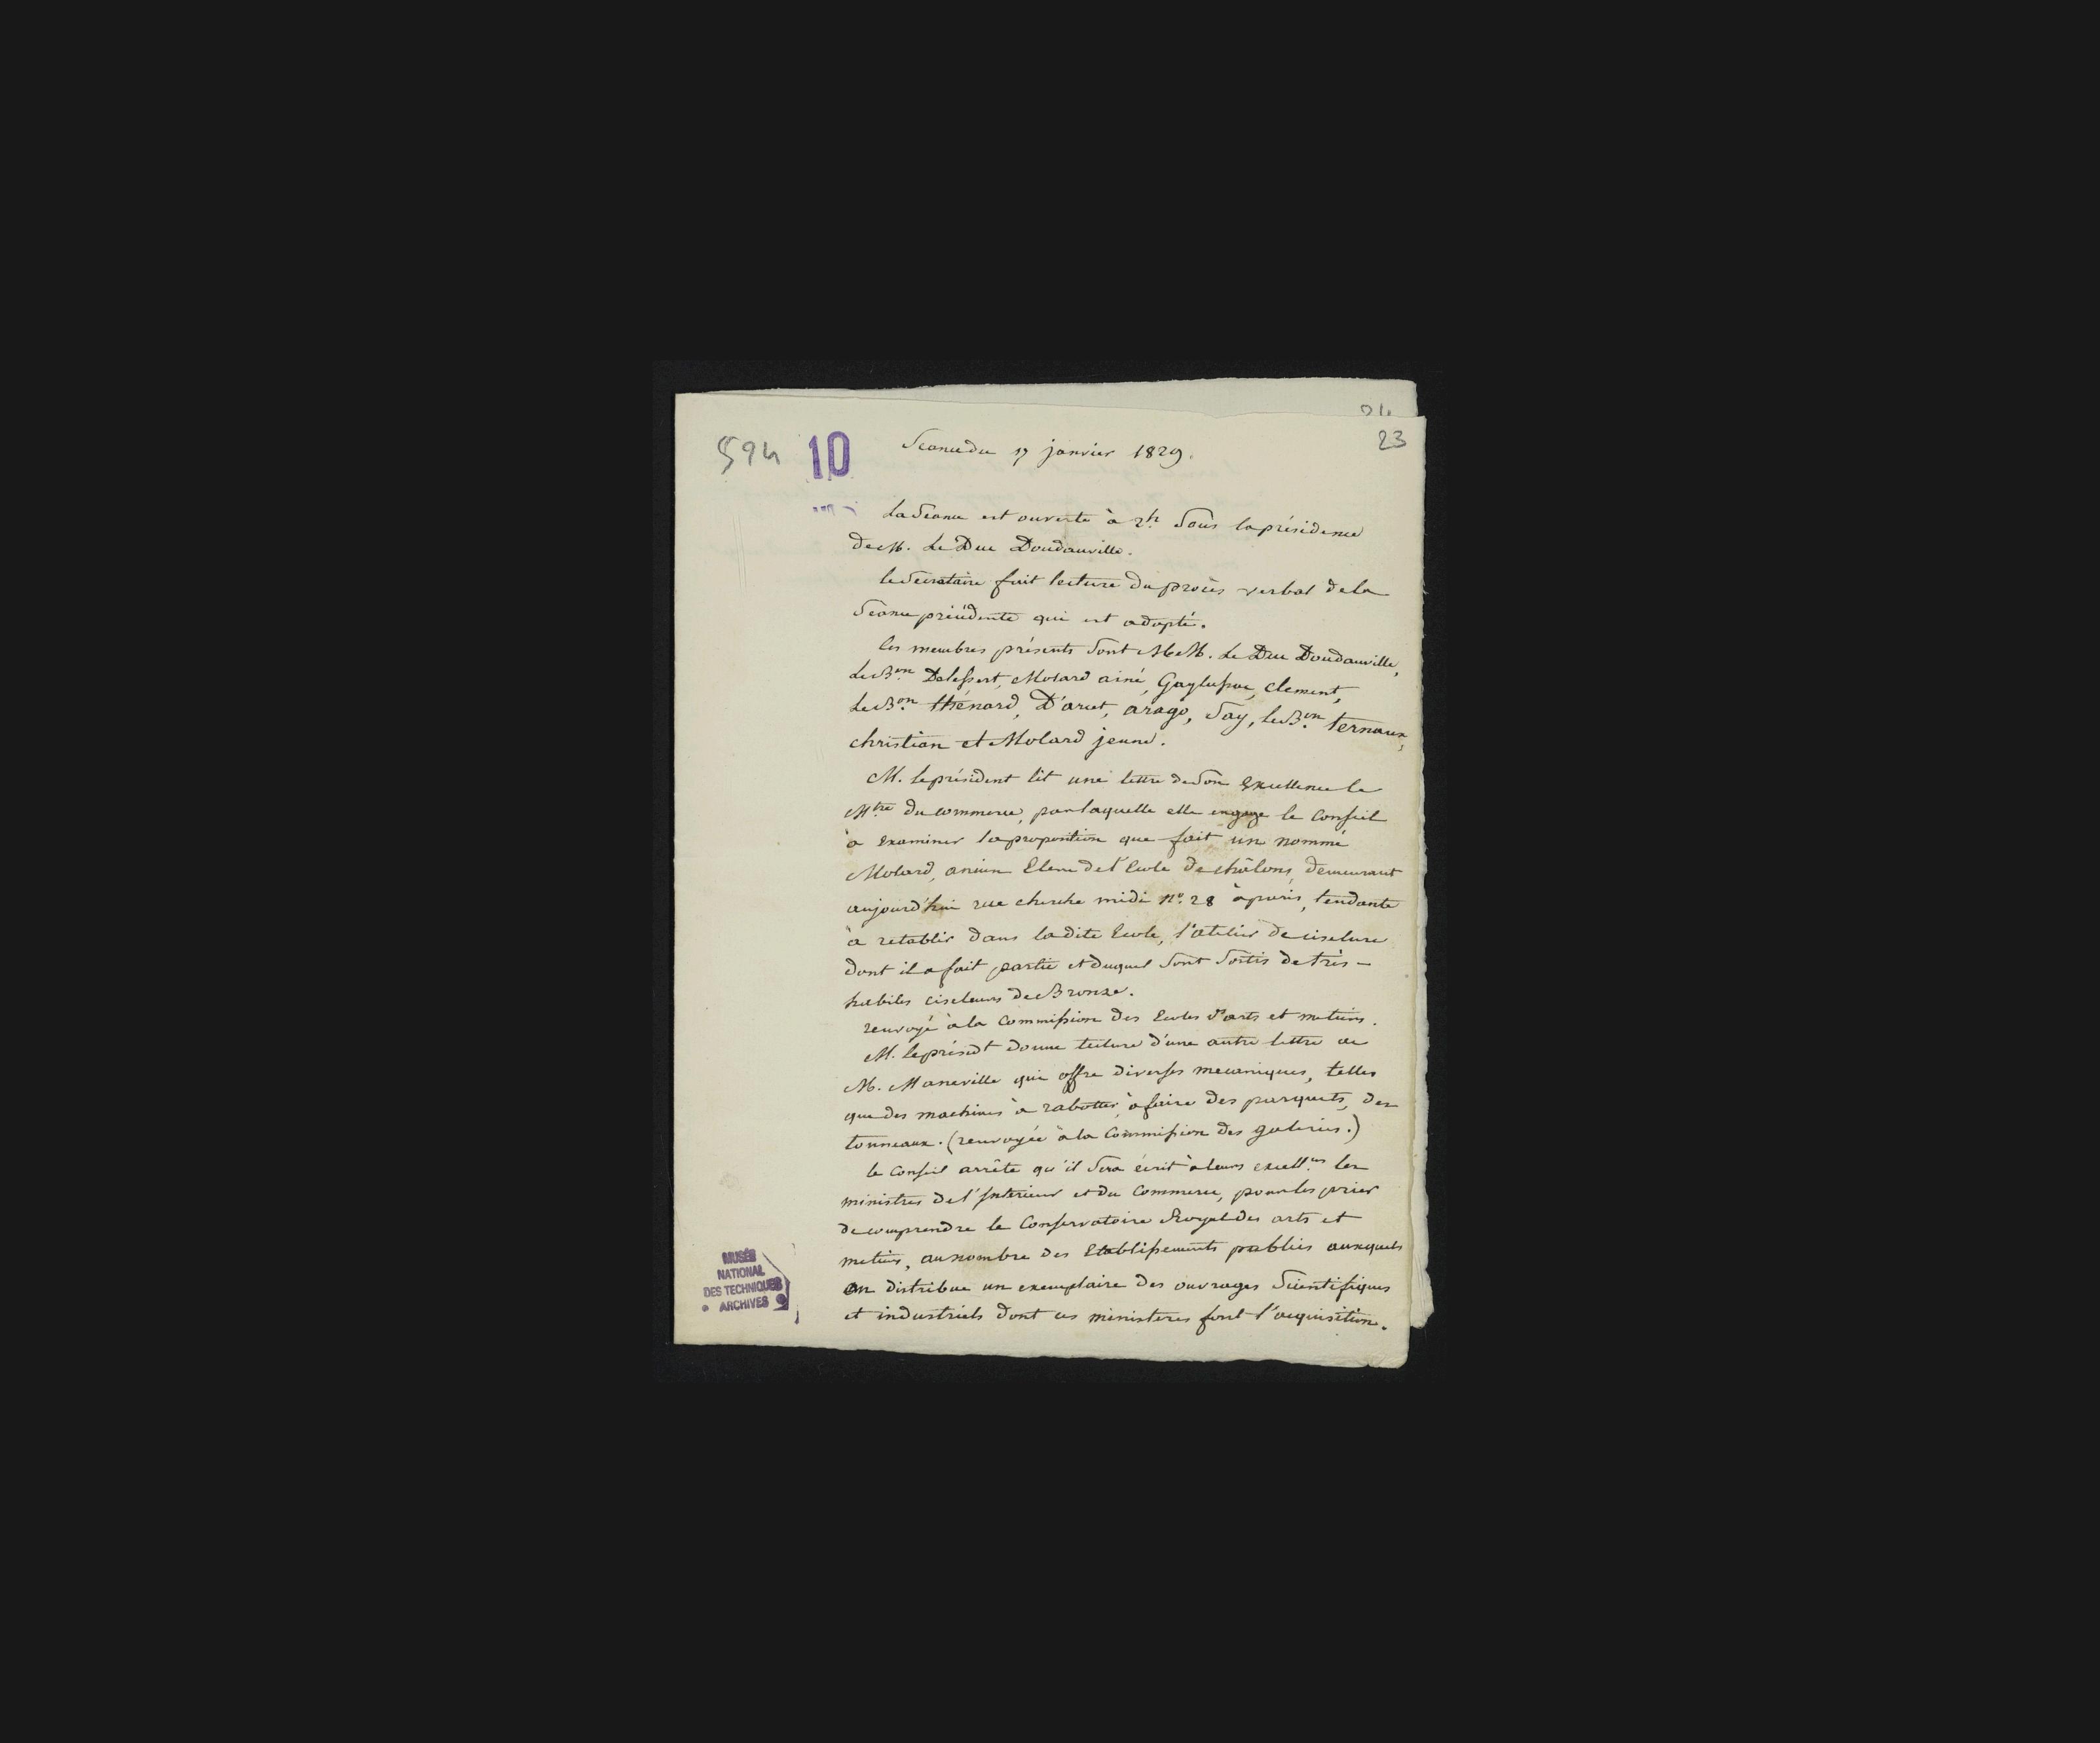 594 10 Seance du 17 janvier 1829. 23
La Seance est ouverte à 2h. Sous la présidence
de M. Le Duc Doudauville.
le Secretaire fait lecture du procès verbal de la
Seance précédente qui est adopté.
les membres présents Sont MM. Le Duc Doudauville,
Le Bon. Delessert, Molard ainé, Gaylussac, Clement,
Le Bon. thénard, D'arcet, arago, Say, le Bon. ternaux,
christian et Molard jeune.
M. le président lit une lettre de Son Excellence le
Mtre du commerce, par laquelle elle engage le Conseil
à examiner la proposition que fait un nommé
Molard, ancien Eleve de l'Ecole de châlons, demeurant
aujourd'hui rue cherche midi no. 28 à paris, tendante
à retablir dans ladite Ecole, l'atelier de ciselure
dont il a fait partie et duquel Sont Sortis de très-
habiles ciseleurs de Bronze.
renvoyé à la Commission des Ecoles d'arts et metiers.
M. le présidt donne lecture d'une autre lettre de
M. Maneville qui offre diverses mecaniques, telles
que des machines à rabotter, à faire des parquets, des
tonneaux. (renvoyée à la Commission des galeries.)
le Conseil arrête qu'il Sera écrit à leurs excell.ces les
ministres de l'Interieur et du Commerce, pour les prier
de comprendre le Conservatoire Royal des arts et
metiers, au nombre des Etablissements publics auxquels
on distribue un exemplaire des ouvrages Scientifiques
et industriels dont ces ministeres font l'acquisition.
MUSÉE
NATIONAL
DES TECHNIQUES
ARCHIVES